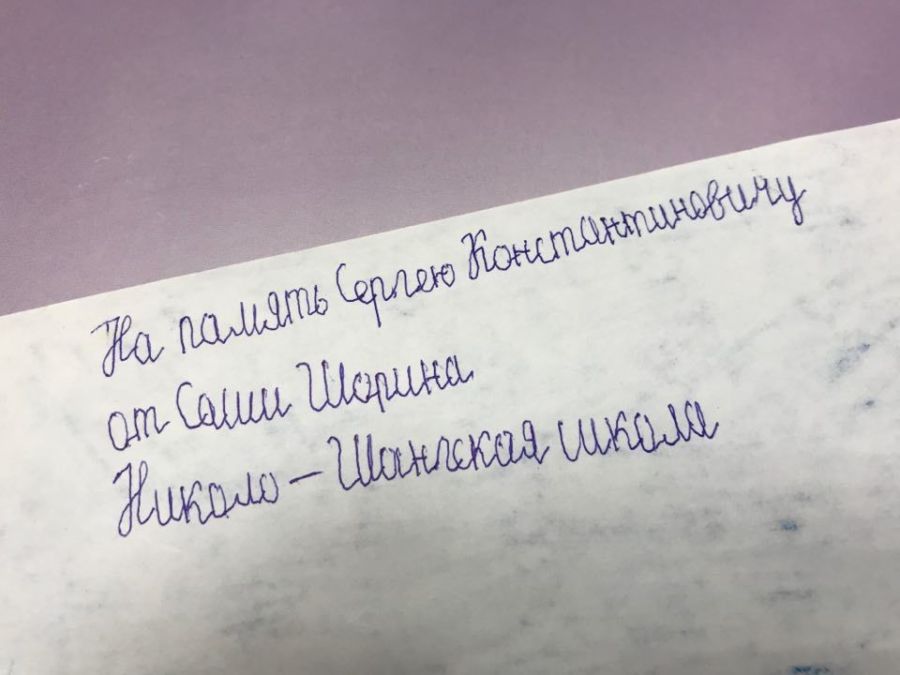 На память Сергею Константиновичу
от Саши Шарина
Николо – Шангская школа